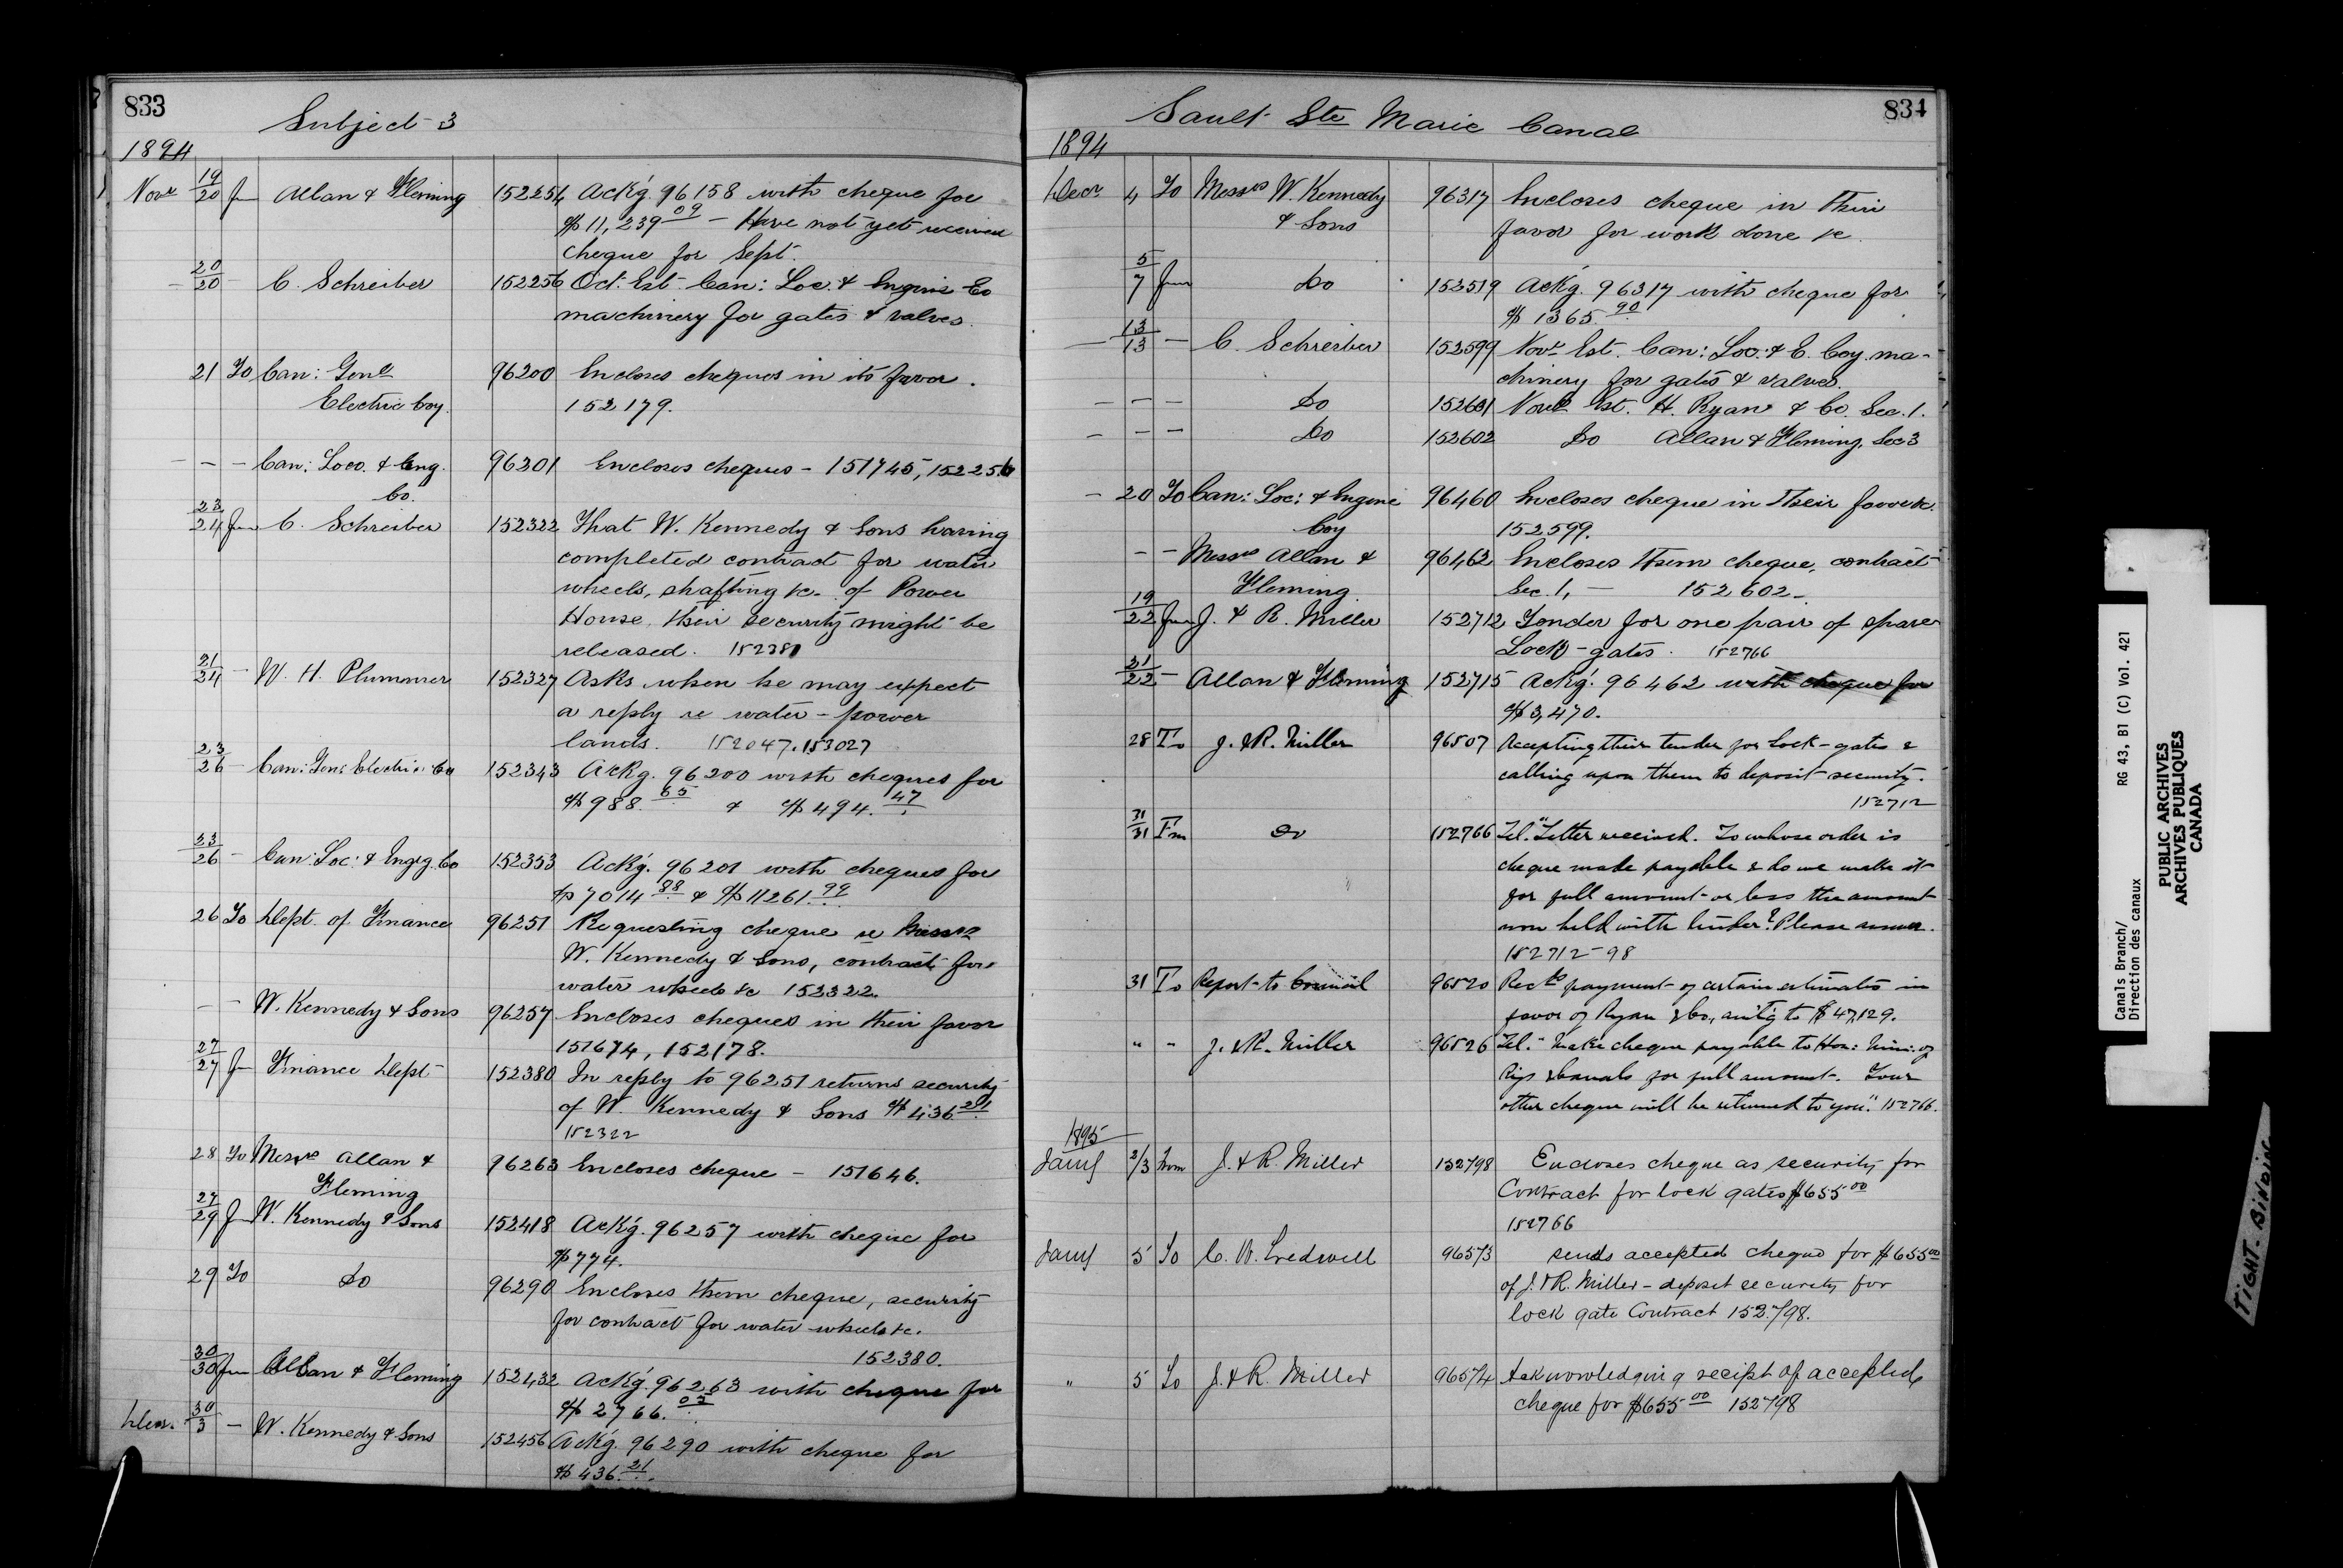 833
Subject 3
1894
Novr 19/20 fm Allan & Fleming 152254 Ackg. 96158 with cheque for
$11,239.09 – Have not yet received
cheque for Sept.
– 20/20 – C. Schreiber 152256 Oct. Est. Can: Loc. & Engine Co
machinery for gates & valves.
21 To Can: Genl 96200 Encloses cheques in its favor.
Electric Coy. 152179.
– – – Can: Loco. & Eng. 96201 Encloses cheques – 151745, 152256
Co.
23/24 fm C. Schreiber 152322 That W. Kennedy & Sons having
completed contract for water
wheels, shafting &c. of Power
House, their security might be
released. 152380
21/24 – W. H. Plummer 152327 Asks when he may expect
a reply re water-power
lands. 152047, 153027
23/26 – Can: Gen: Electric Co 152343 Ackg. 96200 with cheques for
$988.65 & $494.47
23/26 – Can: Loc: & Engrg. Co 152353 Ackg. 96201 with cheques for
$7014.88 & $11261.99
26 To Dept. of Finance 96251 Requesting cheque re Messrs
W. Kennedy & Sons, contract for
water wheels &c 152322.
– – W. Kennedy & Sons 96257 Encloses cheques in their favor
151674, 152178.
27/27 fm Finance Dept 152380 In reply to 96251 returns security
of W. Kennedy & Sons $436.21
152322
28 To Messrs Allan & 96263 Encloses cheque – 151646.
Fleming
27/29 fm W. Kennedy & Sons 152418 Ackg. 96257 with cheque for
$774.
29 To Do 96290 Encloses them cheque, security
for contract for water wheels &c.
152380.
30/30 fm Allan & Fleming 152432 Ackg. 96263 with cheque for
$2766.03
Decr. 30/3 – W. Kennedy & Sons 152456 Ackg. 96290 with cheque for
$436.21.
834
Sault Ste Marie Canal
1894
Decr 4 To Messrs W. Kennedy 96317 Encloses cheque in their
& Sons favor for work done &c.
5/7 from Do 152519 Ackg. 96317 with cheque for
$1365.90
– 13/13 – C. Schreiber 152599 Novr Est. Can: Loc: & E. Coy. ma-
chinery for gates & valves.
– – – Do 152601 Novr Est. H. Ryan & Co. Sec. 1.
– – – Do 152602 Do Allan & Fleming, Sec 3
– 20 To Can: Loc: & Engine 96460 Encloses cheque in their favor &c
Coy 152599.
– – Messrs Allan & 96462 Encloses them cheque, contract
Fleming. Sec. 1, – 152602 –
19/22 from J. & R. Miller 152712 Tender for one pair of spare
Lock-gates. 152766
21/22 – Allan & Fleming 152715 Ackg. 96462 with cheque for
$3,470.
28 To J. & R. Miller 96507 Accepting their tender for Lock-gates &
calling upon them to deposit security.
152712
31/31 Fm Do 152766 Tel. "Letter received. To whose order is
cheque made payable & do we make it
for full amount or less the amount
now held with tender? Please answer.
152712–98
31 To Report to Council 96520 Recds payment of certain estimates in
favor of Ryan & Co., amtg to $47,129.
" " J. & R. Miller 96526 Tel. "Make cheque payable to Hon: Min: of
Rys & Canals for full amount. Your
other cheque will be returned to you." 152766.
1895
Jany 2/3 from J. & R. Miller 152798 Encloses cheque as security for
Contract for lock gates $655.00
152766
Jany 5 To C. W. Tredwell 96573 sends accepted cheque for $655.00
of J. & R. Miller – deposit security for
lock gate Contract 152798.
" 5 To J. & R. Miller 96574 Acknowledging receipt of accepted
cheque for $655.00 152798
Canals Branch/ RG 43, B1 (C) Vol. 421
Direction des canaux
PUBLIC ARCHIVES
ARCHIVES PUBLIQUES
CANADA
TIGHT-BINDING